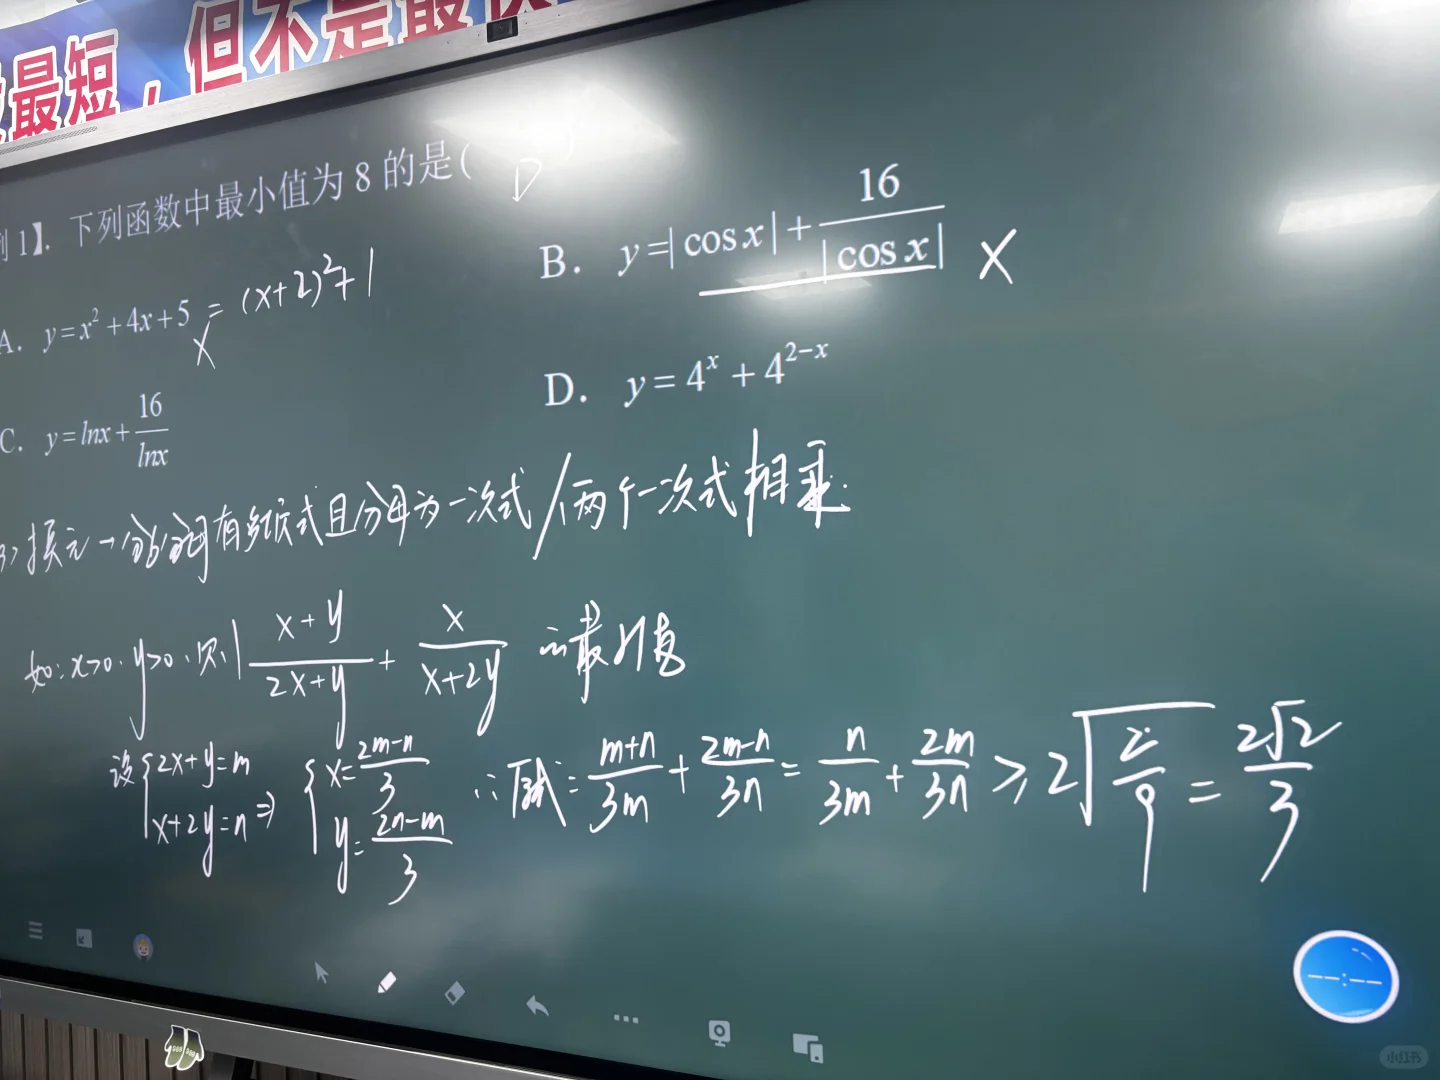 最短，但不是最快
例1】. 下列函数中最小值为 8 的是( D )
A. y=x²+4x+5 = (x+2)²+1 X
B. y=|cosx|+16/|cosx| X
C. y=lnx+16/lnx
D. y=4^x+4^(2-x)
换元→分式分母有多项式且分母为一次式/两个一次式相乘.
如: x>0. y>0. 则 (x+y)/(2x+y) + x/(x+2y) 最小值
设 { 2x+y=m x+2y=n ⇒ { x=(2m-n)/3 y=(2n-m)/3 ∴原式=(m+n)/3m+(2m-n)/3n=n/3m+2m/3n≥2√(2/9)=2√2/3
小红书